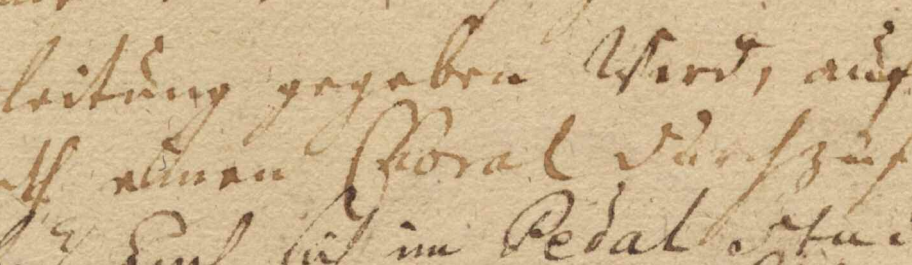 leitung gegeben Wird, auf
th einen Choral durchzuf
sich im Pedal stu